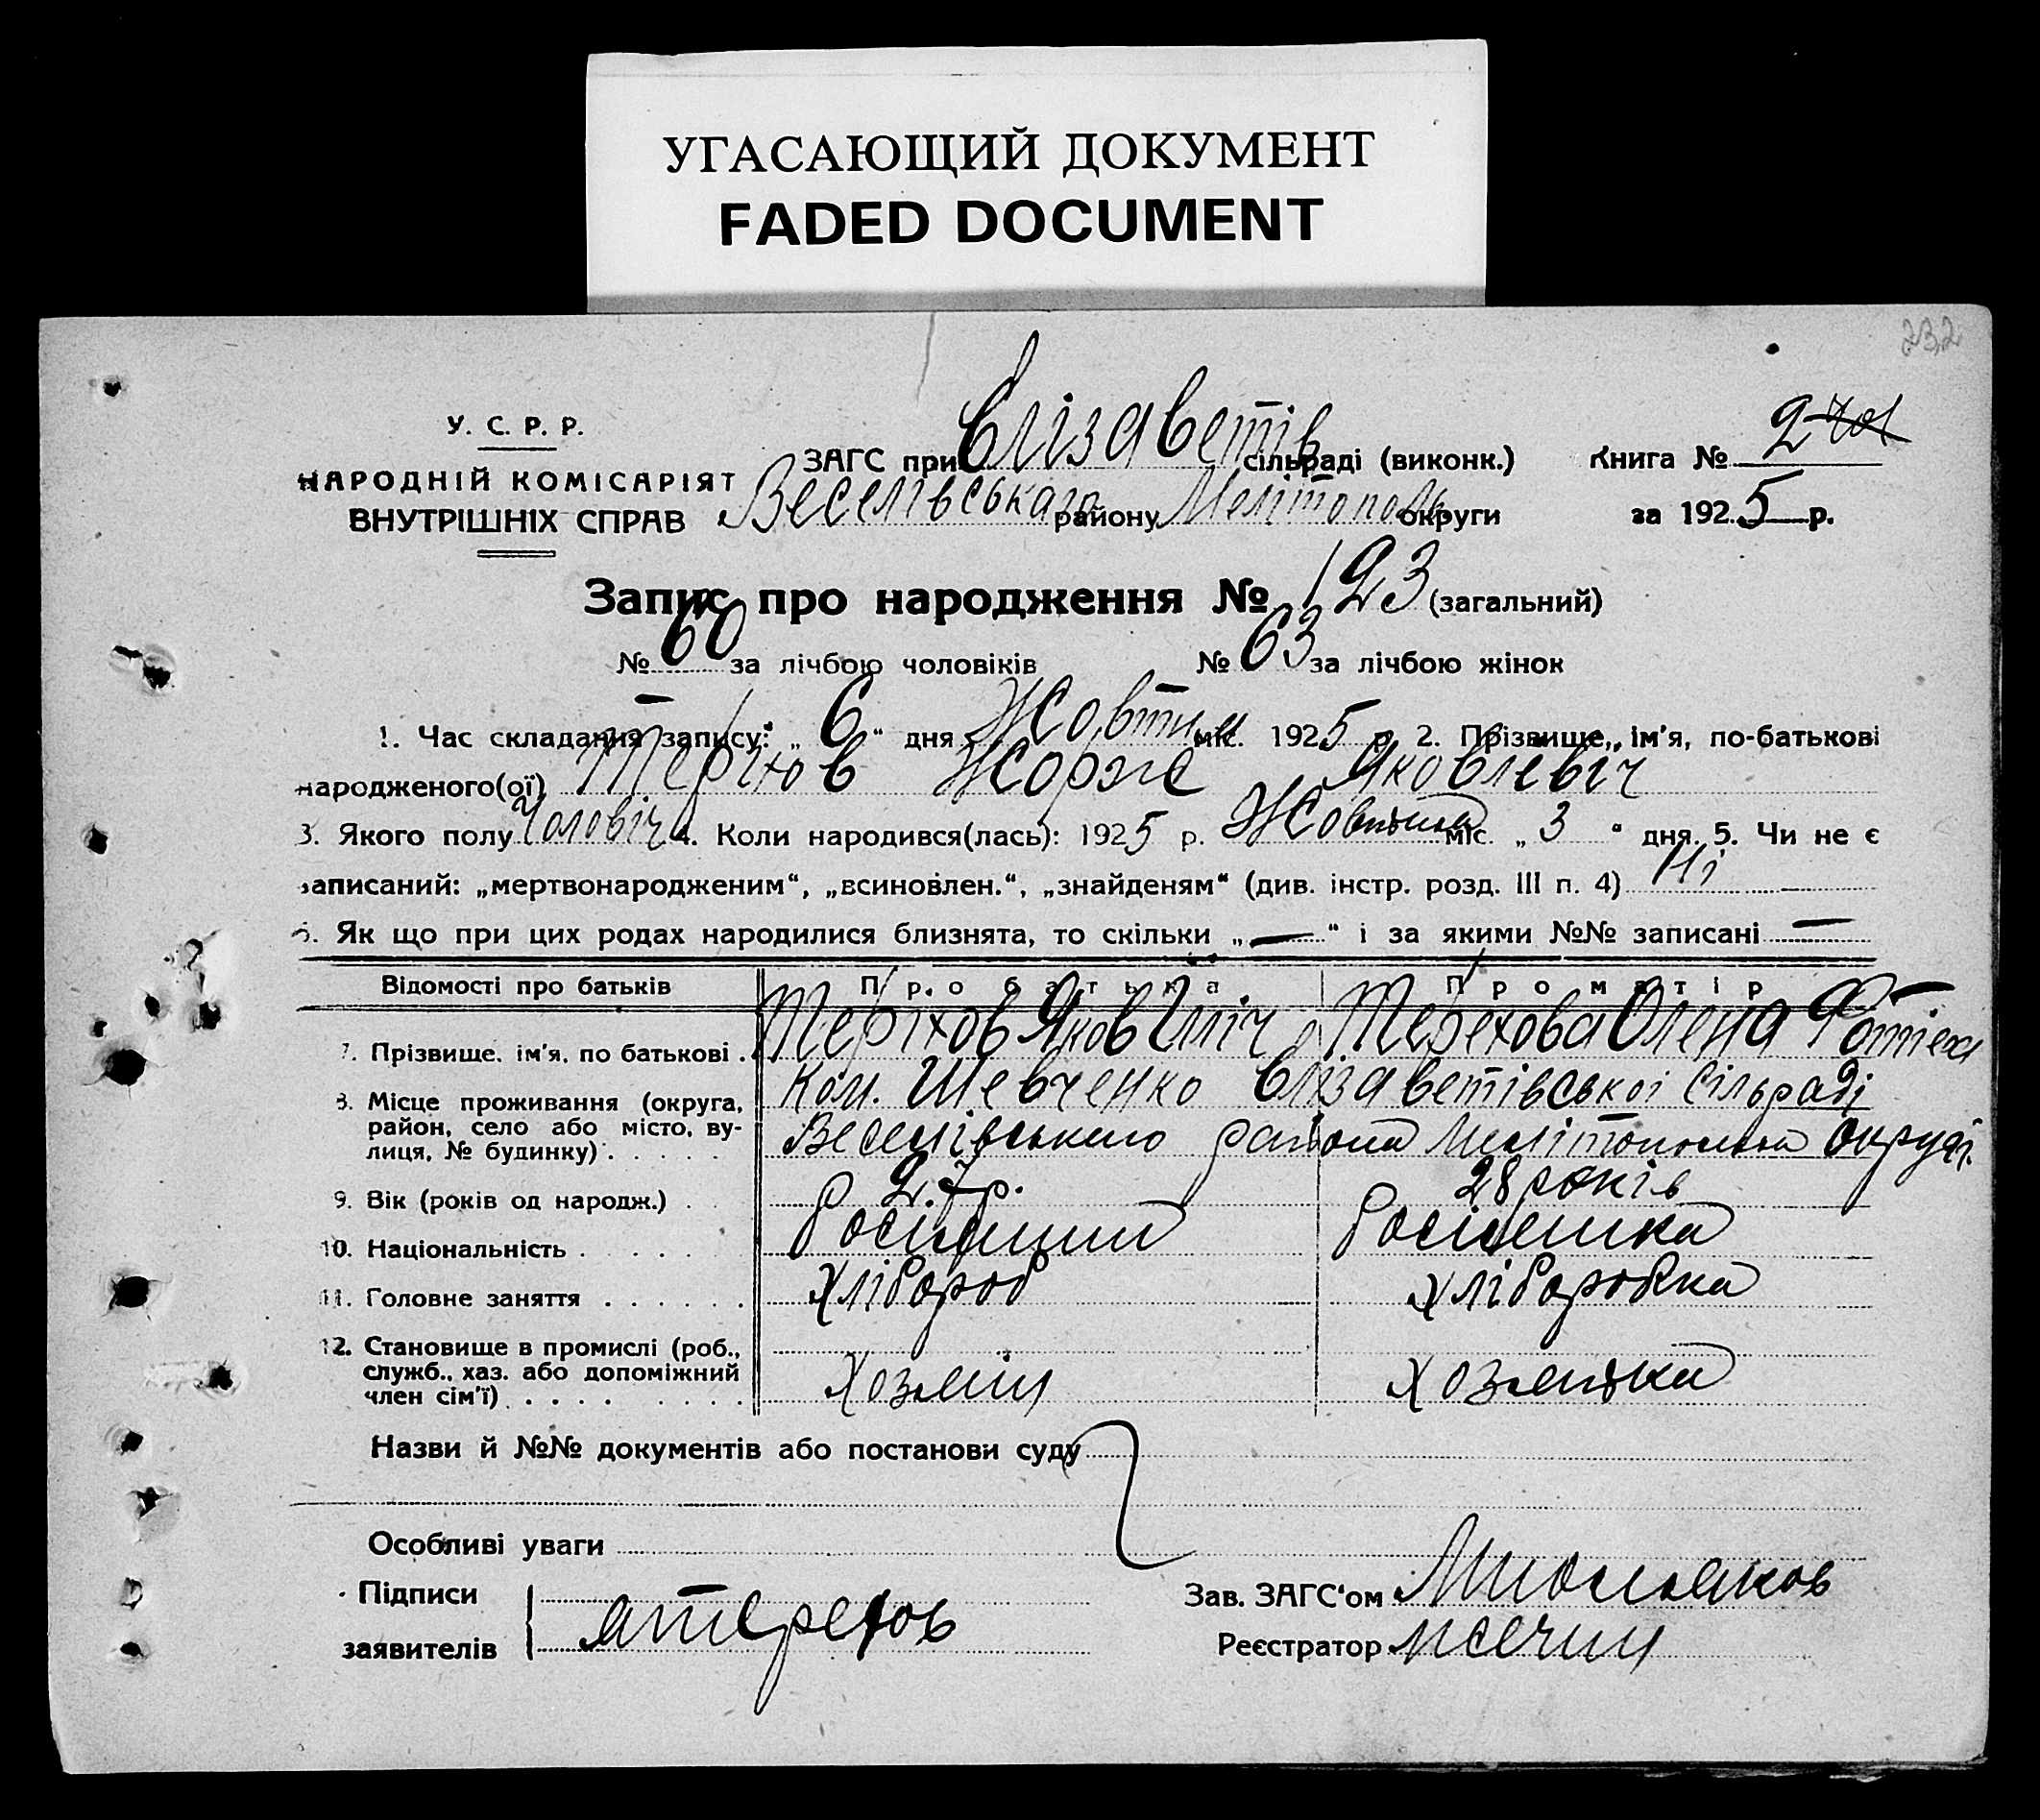 УГАСАЮЩИЙ ДОКУМЕНТ
FADED DOCUMENT
232
У. С. Р. Р.
НАРОДНІЙ КОМІСАРІЯТ
ВНУТРІШНІХ СПРАВ
ЗАГС при Єлізаветів сільраді (виконк.)
Веселівського району Мелітополь округи
Книга № 2
за 1925 р.
Запис про народження № 123 (загальний)
№ 60 за лічбою чоловіків № 63 за лічбою жінок
1. Час складання запису: „ 6 “ дня Жовтня міс. 1925 р. 2. Прізвище, ім'я, по-батькові
народженого(ої) Теріхов Жорж Яковлевіч
3. Якого полу Чоловіч 4. Коли народився(лась): 1925 р. Жовтня міс. „ 3 “ дня. 5. Чи не є
записаний: „мертвонародженим“, „всиновлен.“, „знайденям“ (див. інстр. розд. III п. 4) Ні
6. Як що при цих родах народилися близнята, то скільки „ — “ і за якими №№ записані —
Відомості про батьків Про батька Про матір
7. Прізвище, ім'я, по батькові . Теріхов Яков Ілліч Терехова Олена
8. Місце проживання (округа, район, село або місто, вулиця, № будинку) . . . . . Ком. Шевченко Єлізаветівської Сільраді
Веселівського района Мелітополька округі.
9. Вік (років од народж.) . . 27 р. 28 років
10. Національність . . . . . Росіянин Росіянка
11. Головне заняття . . . . . . Хлібороб Хліборобка
12. Становище в промислі (роб., служб., хаз. або допоміжний член сім'ї) . . . . Хозяїн Хозяйка
Назви й №№ документів або постанови суду
Особливі уваги
Підписи
заявителів Я Терехов
Зав. ЗАГС'ом
Реєстратор